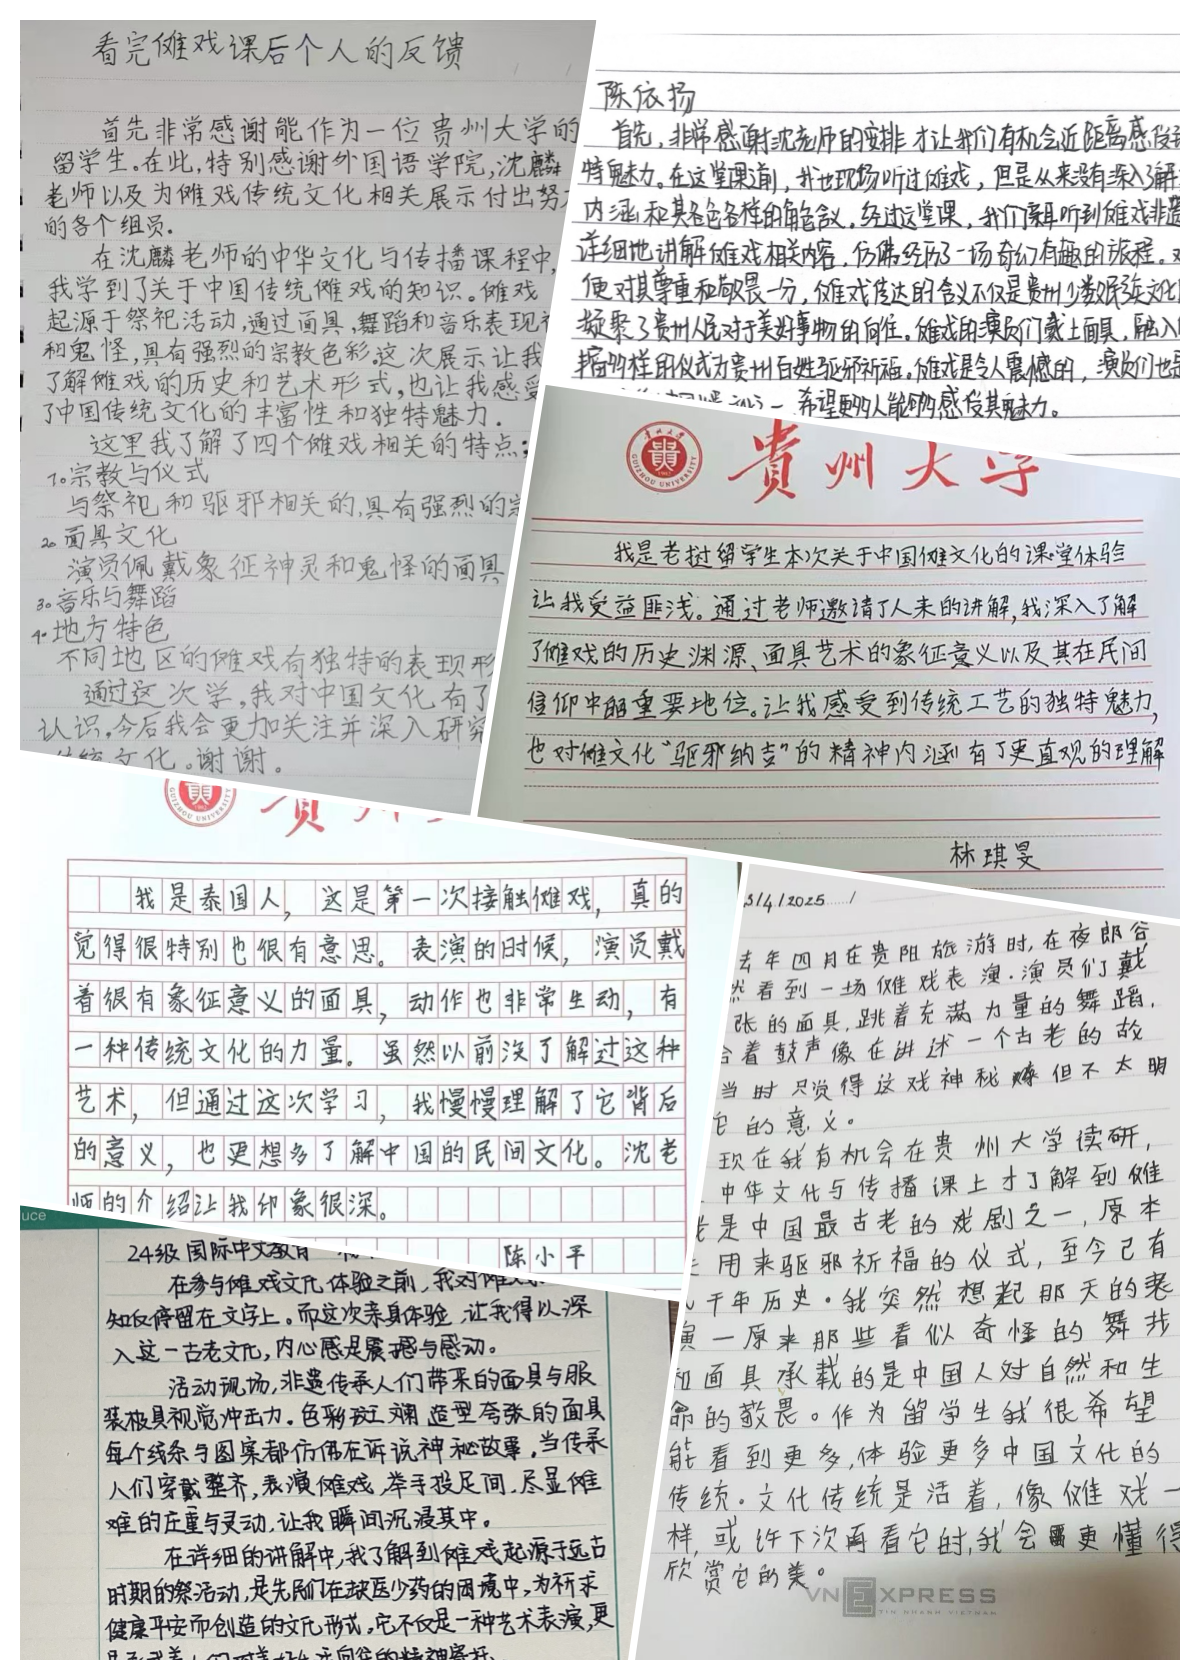 看完傩戏课后个人的反馈
首先非常感谢能作为一位贵州大学的
留学生.在此,特别感谢外国语学院,沈麟
老师以及为傩戏传统文化相关展示付出努
的各个组员.
在沈麟老师的中华文化与传播课程中,
我学到了关于中国传统傩戏的知识。傩戏
起源于祭祀活动,通过面具,舞蹈和音乐表现
和鬼怪,具有强烈的宗教色彩.这次展示让我
了解傩戏的历史和艺术形式,也让我感受
了中国传统文化的丰富性和独特魅力.
这里我了解了四个傩戏相关的特点:
1。宗教与仪式
与祭祀和驱邪相关的,具有强烈的
2。面具文化
演员佩戴象征神灵和鬼怪的面具
3。音乐与舞蹈
4。地方特色
不同地区的傩戏有独特的表现形
通过这次学,我对中国文化有了
认识,今后我会更加关注并深入研究
传统文化。谢谢。
陈依扬
首先,非常感谢沈老师的安排才让我们有机会近距离感受到
特魅力。在这堂课之前,我也现场听过傩戏,但是从来没有深入了解
内涵和其各色各样的角色含义。经过这堂课,我们亲耳听到傩戏非遗
详细地讲解傩戏相关内容,仿佛经历了一场奇幻有趣的旅程。
便对其尊重和敬畏一分,傩戏传达的含义不仅是贵州少数民族文化
凝聚了贵州人民对于美好事物的向往。傩戏的演员们戴上面具,融入
多样的仪式为贵州百姓驱邪祈福。傩戏是令人震撼的,演员们也
希望更多人能够感受其魅力。
貴州大学
GUIZHOU UNIVERSITY
我是老挝留学生本次关于中国傩文化的课堂体验
让我受益匪浅。通过老师邀请了人来的讲解,我深入了解
了傩戏的历史渊源、面具艺术的象征意义以及其在民间
信仰中的重要地位。让我感受到传统工艺的独特魅力,
也对傩文化“驱邪纳吉”的精神内涵有了更直观的理解
林琪旻
GUIZHOU UNIVERSITY
貴州
我是泰国人,这是第一次接触傩戏,真的
觉得很特别也很有意思。表演的时候,演员戴
着很有象征意义的面具,动作也非常生动,有
一种传统文化的力量。虽然以前没了解过这种
艺术,但通过这次学习,我慢慢理解了它背后
的意义,也更想多了解中国的民间文化。沈老
师的介绍让我印象很深。
陈小平
3/4/2025
去年四月在贵阳旅游时,在夜郎谷
然看到一场傩戏表演.演员们戴
张的面具,跳着充满力量的舞蹈,
合着鼓声像在讲述一个古老的故
当时只觉得这戏神秘但不太明
它的意义。
现在我有机会在贵州大学读研,
中华文化与传播课上才了解到傩
戏是中国最古老的戏剧之一,原本
用来驱邪祈福的仪式,至今已有
千年历史.我突然想起那天的表
演一原来那些看似奇怪的舞步
和面具承载的是中国人对自然和生
命的敬畏。作为留学生我很希望
能看到更多,体验更多中国文化的
传统.文化传统是活着,像傩戏一
样,或许下次再看它时,我会更懂得
欣赏它的美。
VNEXPRESS
TIN NHANH VIETNAM
uce
24级国际中文教育
在参与傩戏文化体验之前,我对傩
知仅停留在文字上。而这次亲身体验,让我得以深
入这一古老文化,内心感是震撼与感动。
活动现场,非遗传承人们带来的面具与服
装极具视觉冲击力。色彩斑斓造型夸张的面具
每个线条与图案都仿佛在诉说神秘故事,当传承
人们穿戴整齐,表演傩戏,举手投足间,尽显傩
难的庄重与灵动,让我瞬间沉浸其中。
在详细的讲解中,我了解到傩戏起源于远古
时期的祭活动,是先民们在缺医少药的困境中,为祈求
健康平安而创造的文化形式,它不仅是一种艺术表演,更
的精神寄托